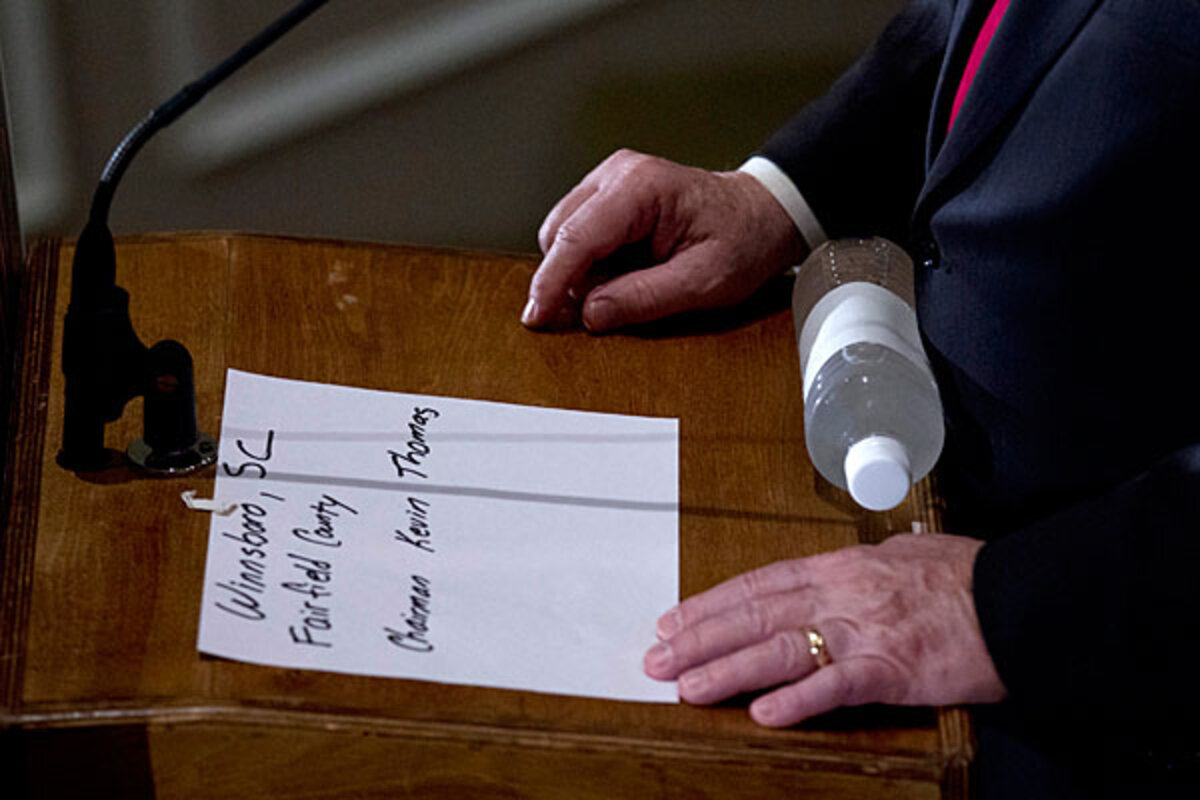 Winnsboro, SC
Fairfield County
Chairman Kevin Thomas